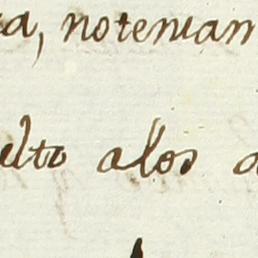 a, notenian
elto alos